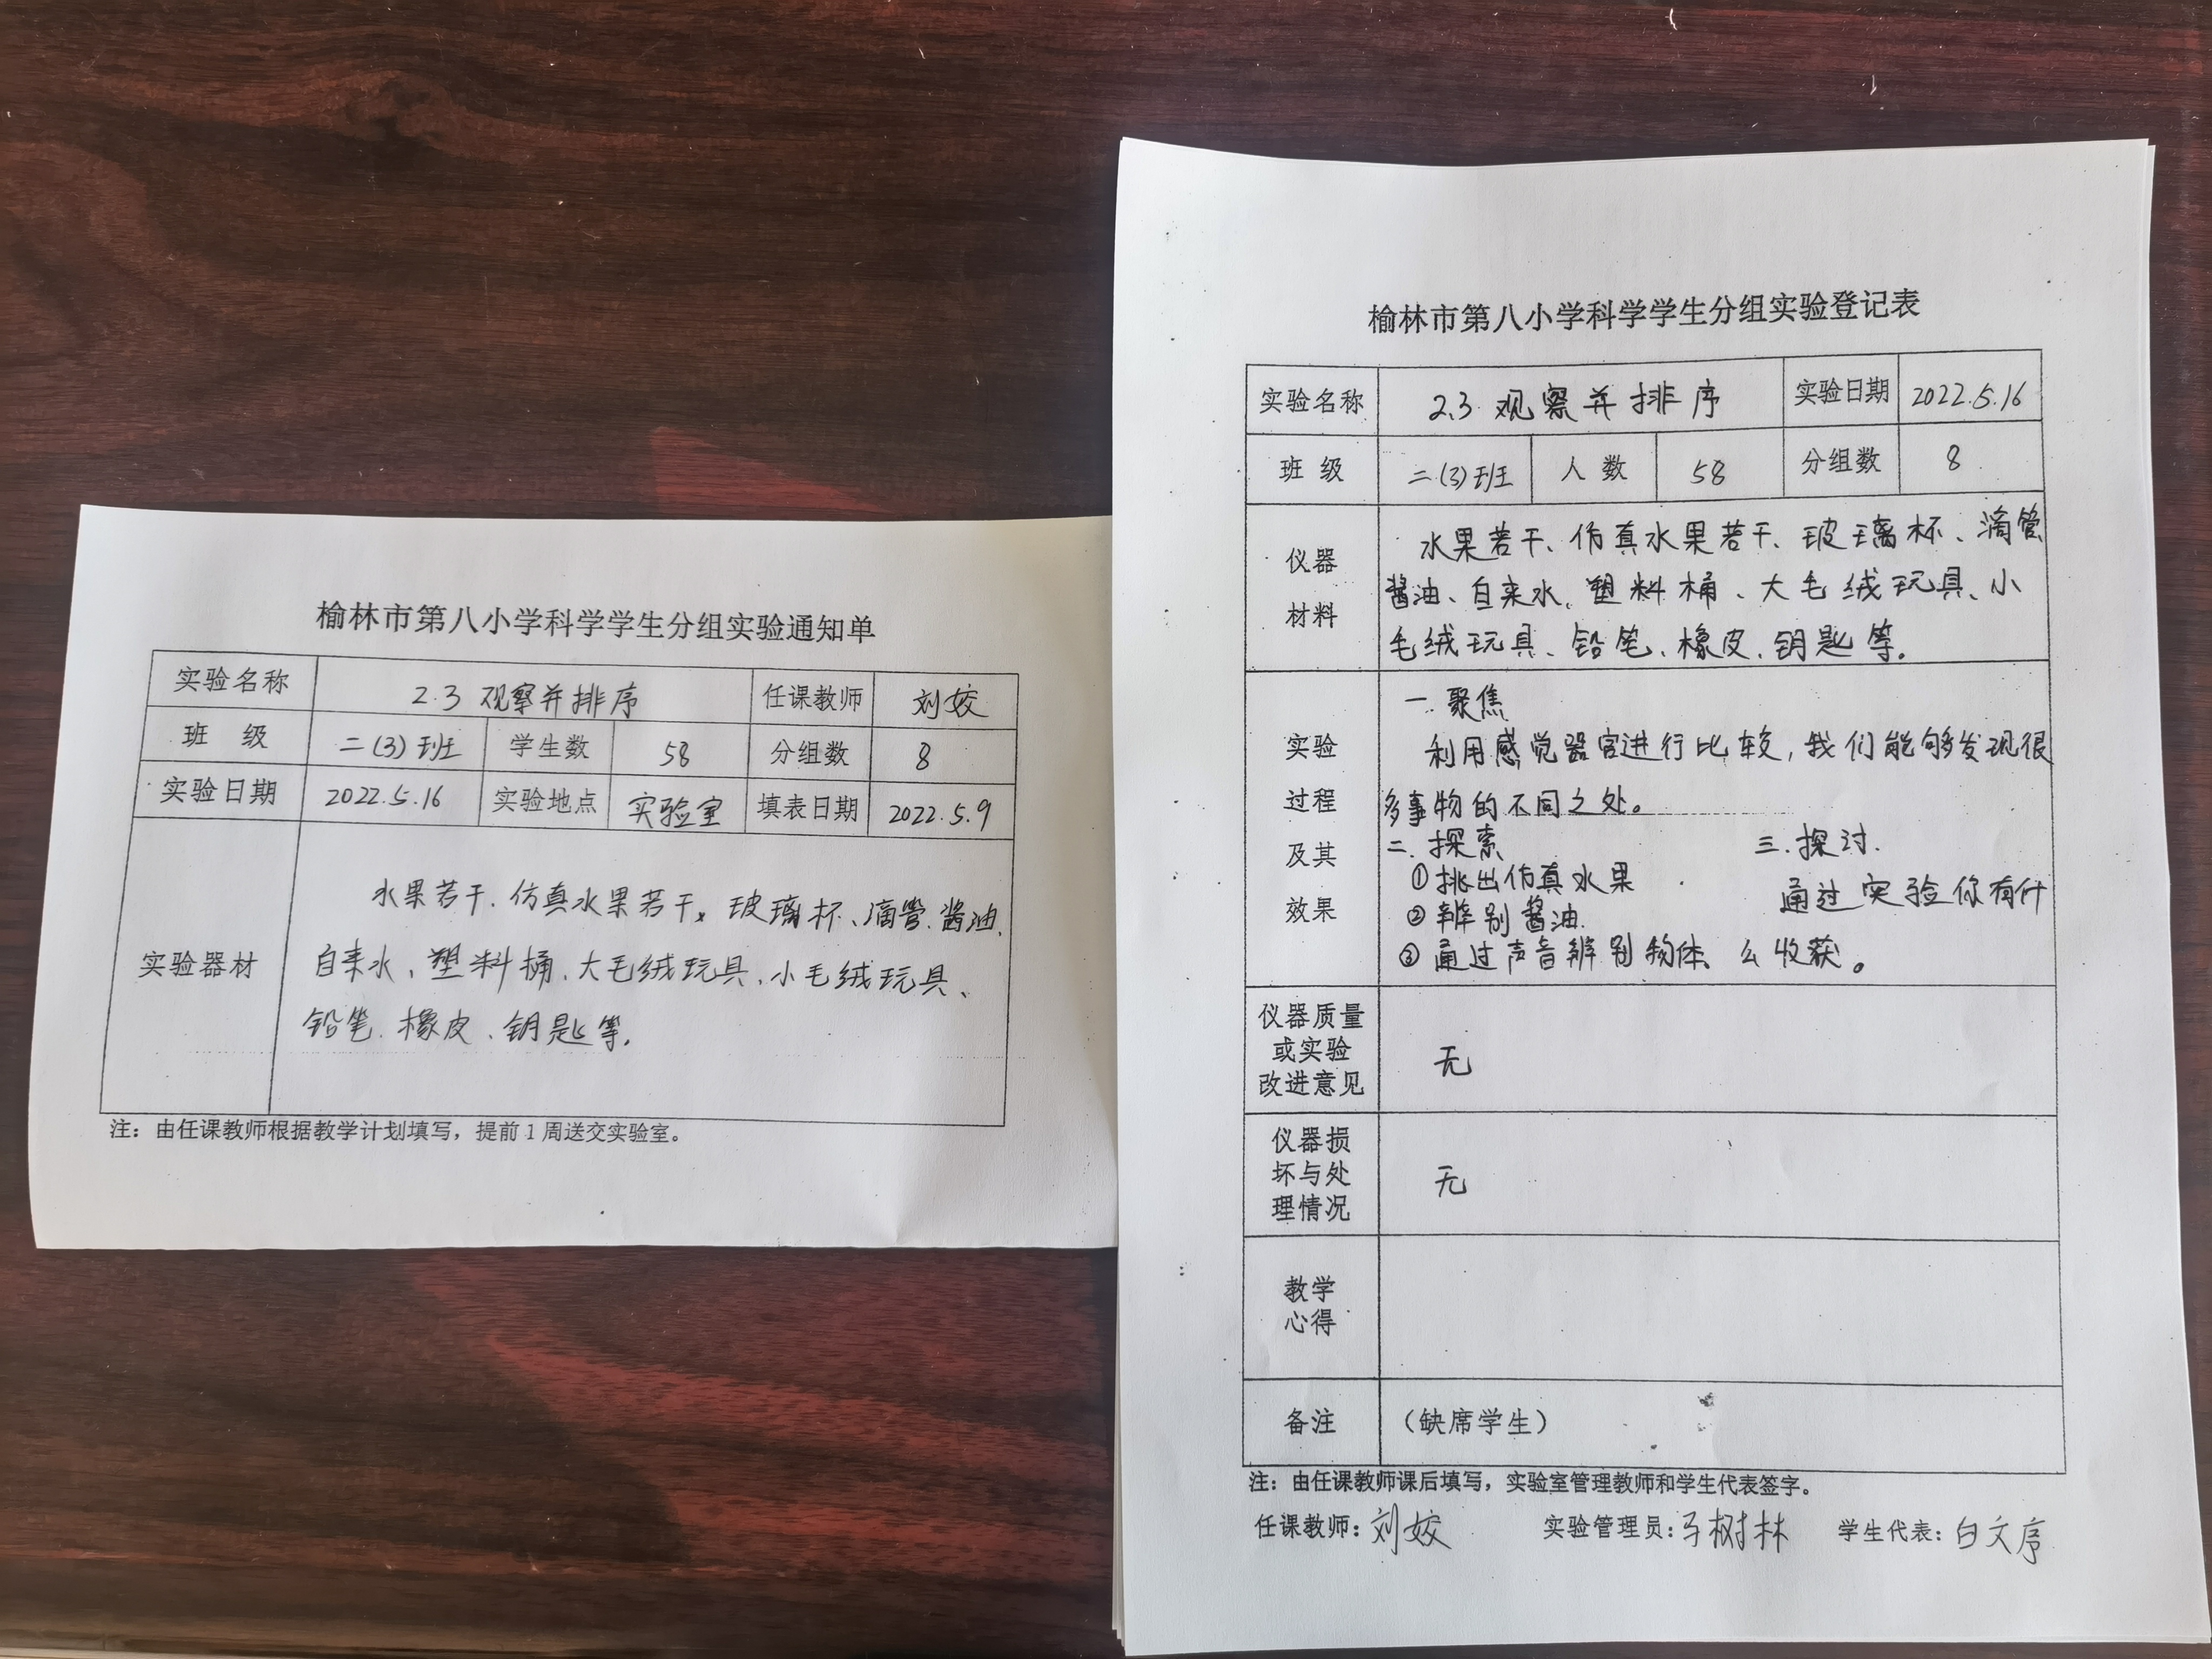 榆林市第八小学科学学生分组实验通知单
实验名称 2.3 观察并排序 任课教师 刘姣
班 级 二(3)班 学生数 58 分组数 8
实验日期 2022.5.16 实验地点 实验室 填表日期 2022.5.9
实验器材
水果若干、仿真水果若干、玻璃杯、滴管、酱油、
自来水、塑料桶、大毛绒玩具、小毛绒玩具、
铅笔、橡皮、钥匙等.
注：由任课教师根据教学计划填写，提前1周送交实验室。
榆林市第八小学科学学生分组实验登记表
实验名称 2.3 观察并排序 实验日期 2022.5.16
班 级 二(3)班 人 数 58 分组数 8
仪器
材料
水果若干、仿真水果若干、玻璃杯、滴管
酱油、自来水、塑料桶、大毛绒玩具、小
毛绒玩具、铅笔、橡皮、钥匙等.
实验
过程
及其
效果
一.聚焦
利用感觉器官进行比较,我们能够发现很
多事物的不同之处。
二.探索
①挑出仿真水果
②辨别酱油.
③通过声音辨别物体、
三.探讨.
通过实验你有什
么收获。
仪器质量
或实验
改进意见
无
仪器损
坏与处
理情况
无
教学
心得
备注 （缺席学生）
注：由任课教师课后填写，实验室管理教师和学生代表签字。
任课教师：刘姣 实验管理员：树林 学生代表：白文序